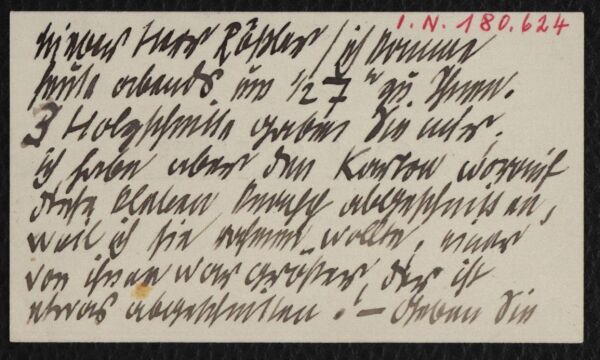 I. N. 180.624
Lieber Herr Rößler / ich komme
heute abends um 1/2 7 h zu Ihnen.
3 Holzschnitte gaben Sie mir.
ich habe aber den Karton worauf
diese kleben abgeschnitten,
weil ich sie rahmen wollte, einer
von ihnen war größer, der ist
etwas abgeschnitten! – Geben Sie